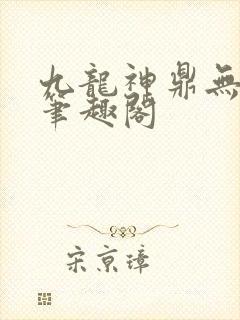 九龍神鼎無
筆趣閣
宋京璋